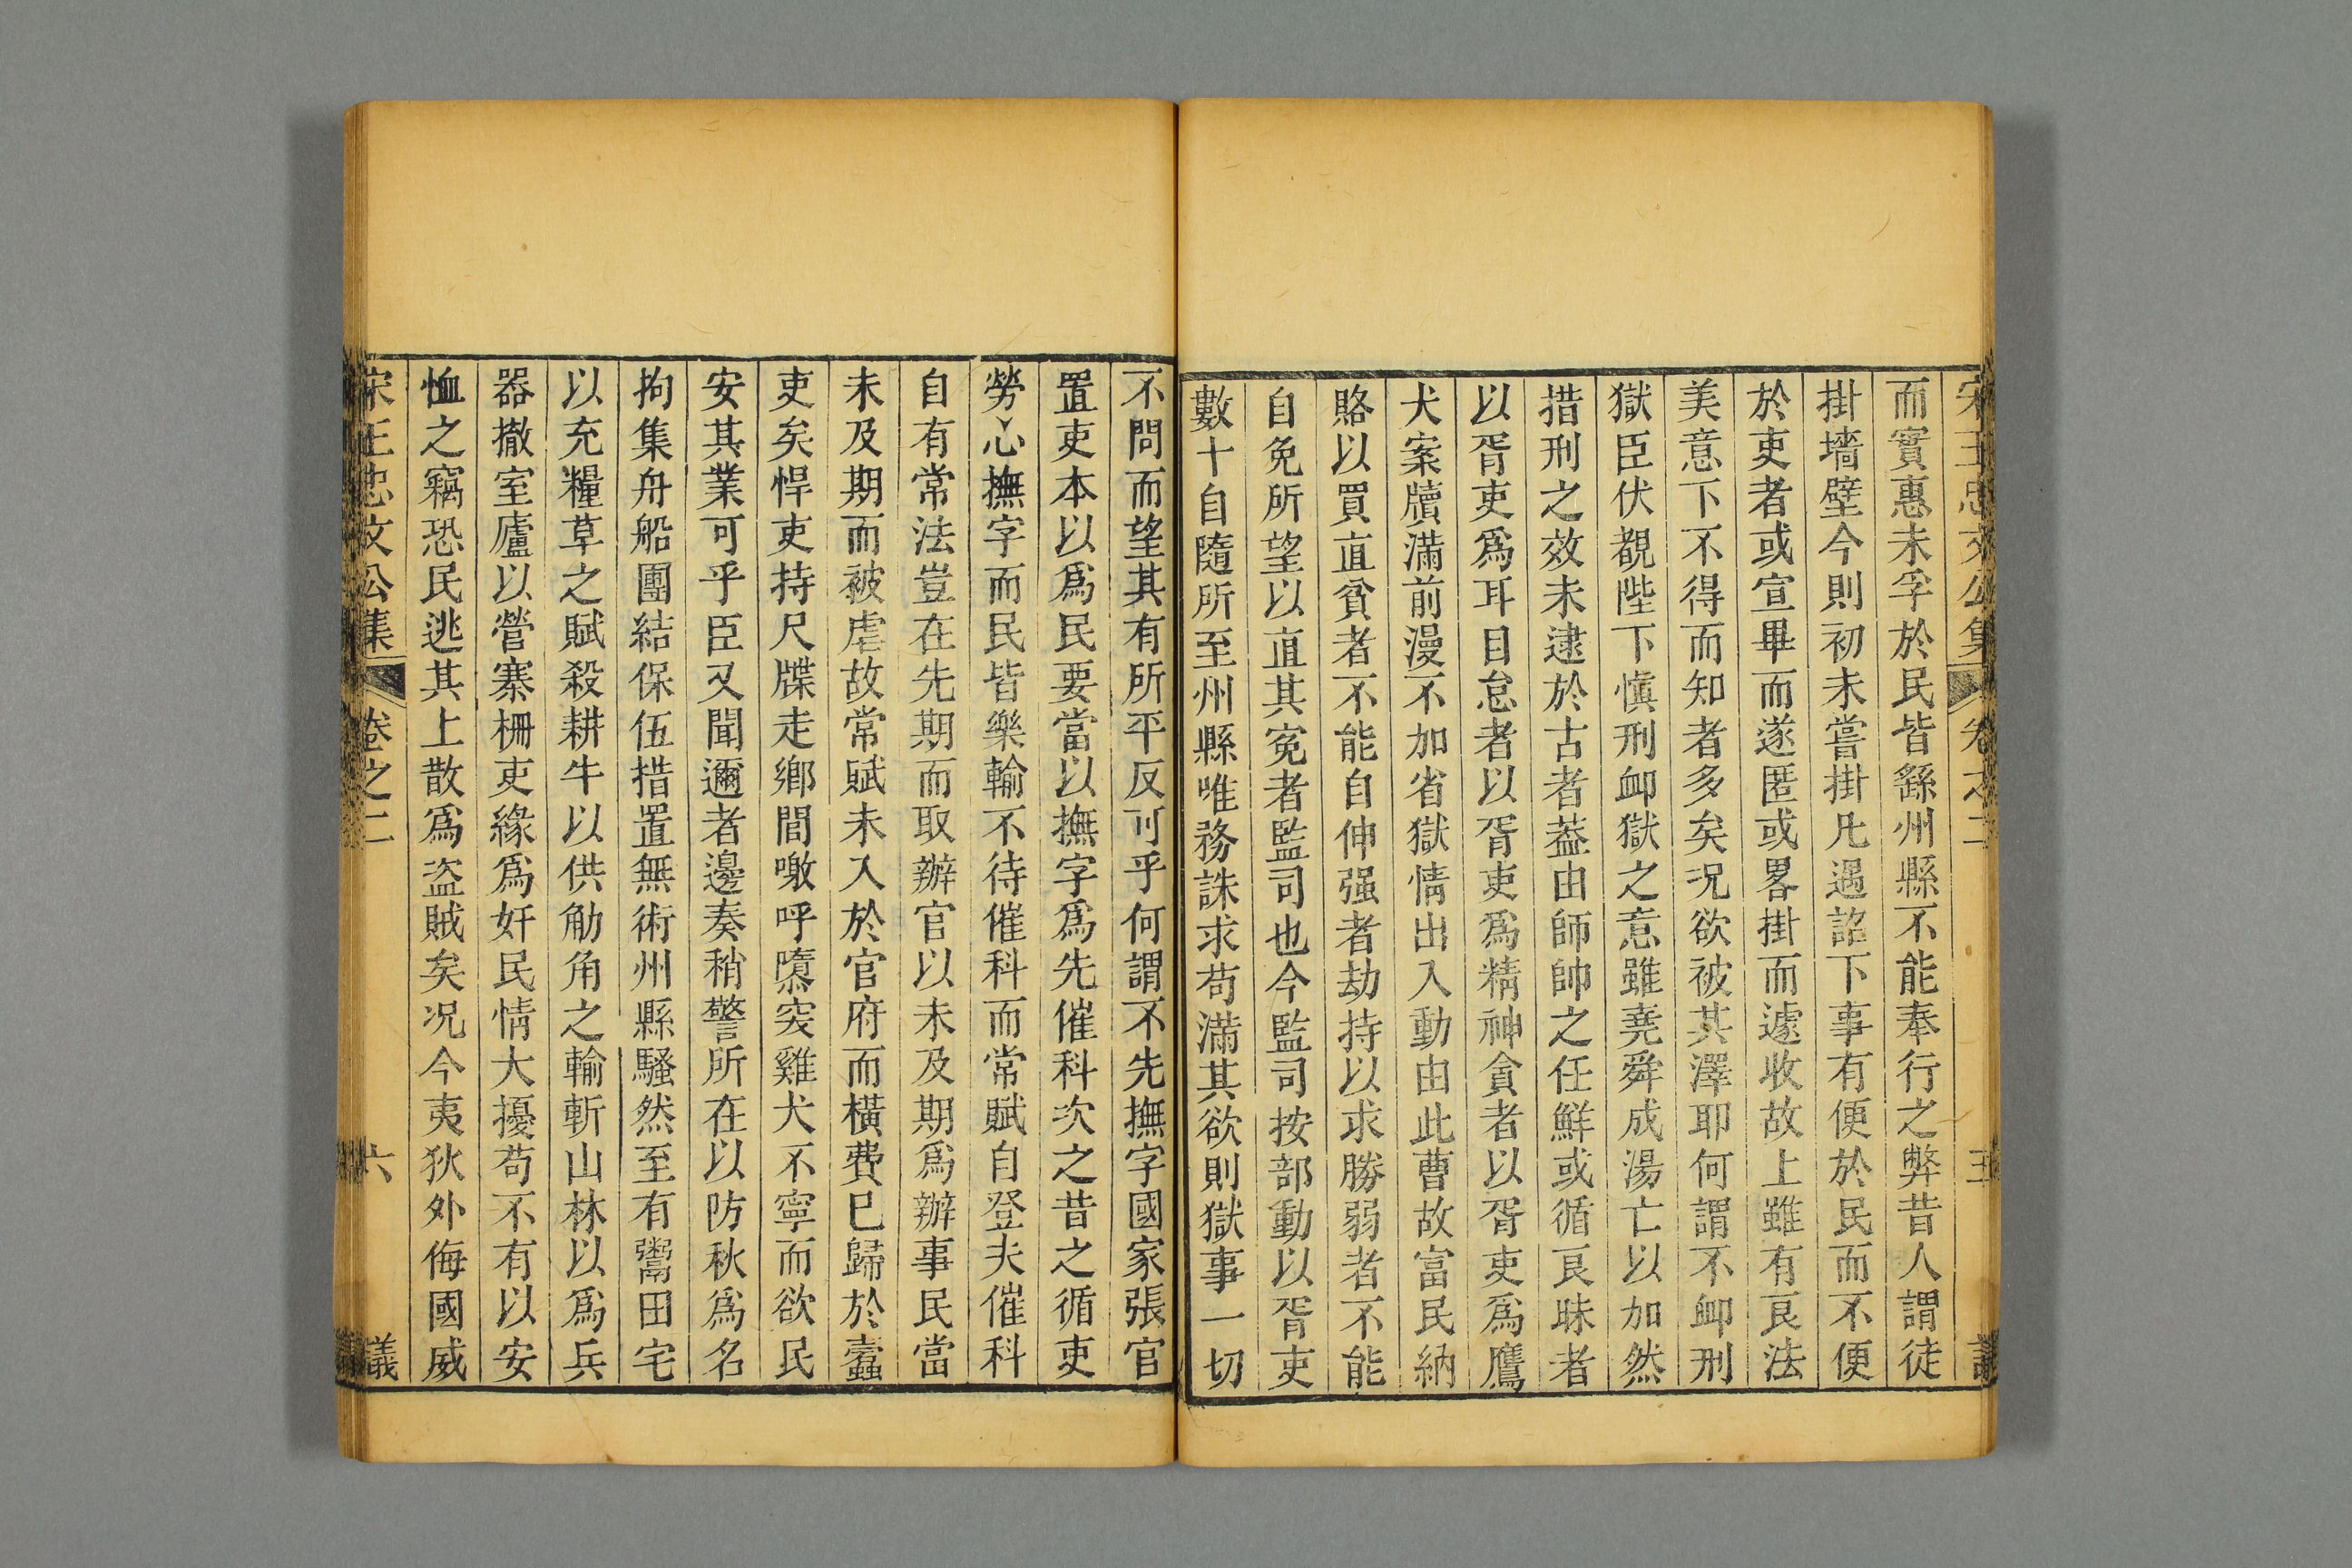 宋王忠文公集 卷之二 五
而實惠未孚於民皆繇州縣不能奉行之弊昔人謂徒
掛墻壁今則初未嘗掛凡遇詔下事有便於民而不便
於吏者或宣畢而遂匿或畧掛而遽收故上雖有良法
美意下不得而知者多矣况欲被其澤耶何謂不衈刑
獄臣伏覩陛下愼刑衈獄之意雖堯舜成湯亡以加然
措刑之效未逮於古者葢由師帥之任鮮或循良昧者
以胥吏爲耳目怠者以胥吏爲精神貪者以胥吏爲鷹
犬案牘滿前漫不加省獄情出入動由此曹故富民納
賂以買直貧者不能自伸强者劫持以求勝弱者不能
自免所望以直其寃者監司也今監司按部動以胥吏
數十自隨所至州縣唯務誅求苟滿其欲則獄事一切
不問而望其有所平反可乎何謂不先撫字國家張官
置吏本以爲民要當以撫字爲先催科次之昔之循吏
勞心撫字而民皆樂輸不待催科而常賦自登夫催科
自有常法豈在先期而取辦官以未及期爲辦事民當
未及期而被虐故常賦未入於官府而橫費已歸於蠹
吏矣悍吏持尺牒走鄉間噭呼隳突雞犬不寧而欲民
安其業可乎臣又聞邇者邊奏稍警所在以防秋爲名
拘集舟船團結保伍措置無術州縣騷然至有鬻田宅
以充糧草之賦殺耕牛以供觔角之輸斬山林以爲兵
器撤室廬以營寨柵吏緣爲奸民情大擾苟不有以安
恤之竊恐民逃其上散爲盗賊矣况今夷狄外侮國威
宋王忠文公集 卷之二 六 議